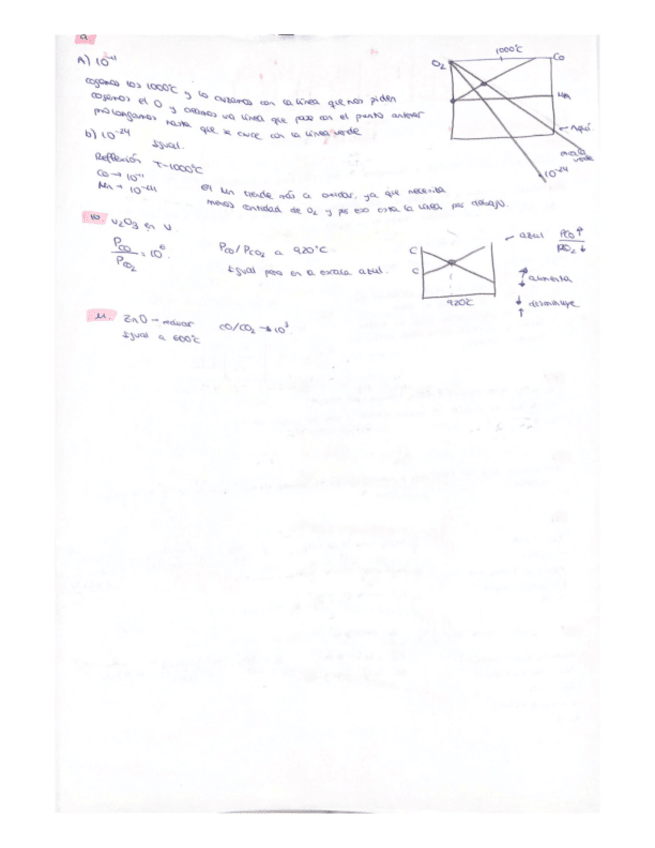 9
A) 10⁻¹¹
cogemos los 1000ºC y lo cruzamos con la línea que nos piden
cogemos el O y creamos una línea que pase con el punto anterior
prolongamos hasta que se cruce con la línea verde
b) 10⁻²⁴
Igual.
Reflexión T-1000ºC
Co → 10⁻¹¹
Mn → 10⁻²⁴
el Mn tiende más a oxidar, ya que necesita
menos cantidad de O₂ y por eso está la línea por debajo.
1000ºC
O₂
Co
Mn
← Aquí.
escala
verde
10⁻²⁴
10
V₂O₃ en V
P_CO / P_CO₂ = 10⁶.
P_CO/P_CO₂ a 920ºC.
Igual pero en la escala azul.
C
C
920ºC
azul PCO↑ / PCO₂↓
aumenta
disminuye
11.
ZnO → reducir CO/CO₂ → 10³.
Igual a 600ºC